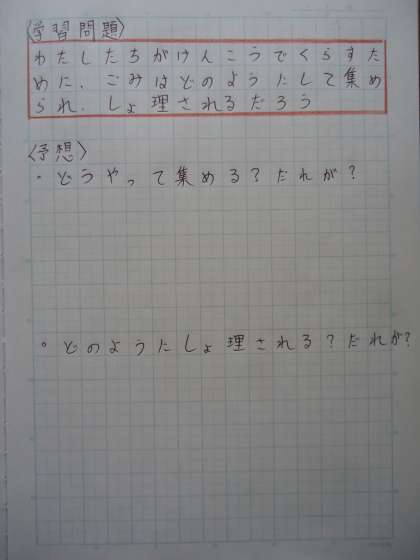 〈学習問題〉
わたしたちがけんこうでくらすた
めに、ごみはどのようにして集め
られ、しょ理されるだろう
〈予想〉
・どうやって集める？だれが？
・どのようにしょ理される？だれが？